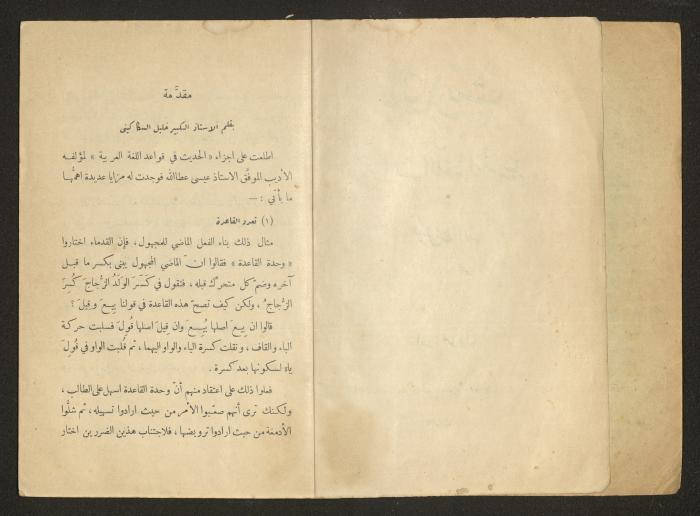 مقدَّمة
بقلم الاستاذ الكبير خليل السكاكيني
اطلعت على اجزاء «الحديث في قواعد اللغة العربية» لمؤلفه
الأديب الموفَّق الاستاذ عيسى عطاالله فوجدت له مزايا عديدة اهمُّها
ما يأتي : —
(١) تعدد القاعدة
مثال ذلك بناء الفعل الماضي للمجهول، فإن القدماء اختاروا
«وحدة القاعدة» فقالوا انَّ الماضي المجهول يبنى بكسر ما قبل
آخره وضمّ كل متحرّك قبله، فنقول في كَسَّرَ الوَلَدُ الزُّجاجَ كُسِرَ
الزُّجاجُ، ولكن كيف تصحّ هذه القاعدة في قولنا بِيعَ وقِيلَ؟
قالوا ان بِيعَ اصلها بُيِعَ وان قِيلَ اصلها قُوِلَ فسلبت حركة
الباء والقاف، ونقلت كسرة الياء والواو اليهما، ثم قُلبت الواو في قُوِلَ
ياءً لسكونها بعد كسرة.
فعلوا ذلك على اعتقاد منهم أنّ وحدة القاعدة اسهل على الطالب،
ولكنك ترى أنهم صعّبوا الأمر من حيث ارادوا تسهيله، ثم شلُّوا
الأدمغة من حيث ارادوا ترويضها، فلاجتناب هذين الضررين اختار